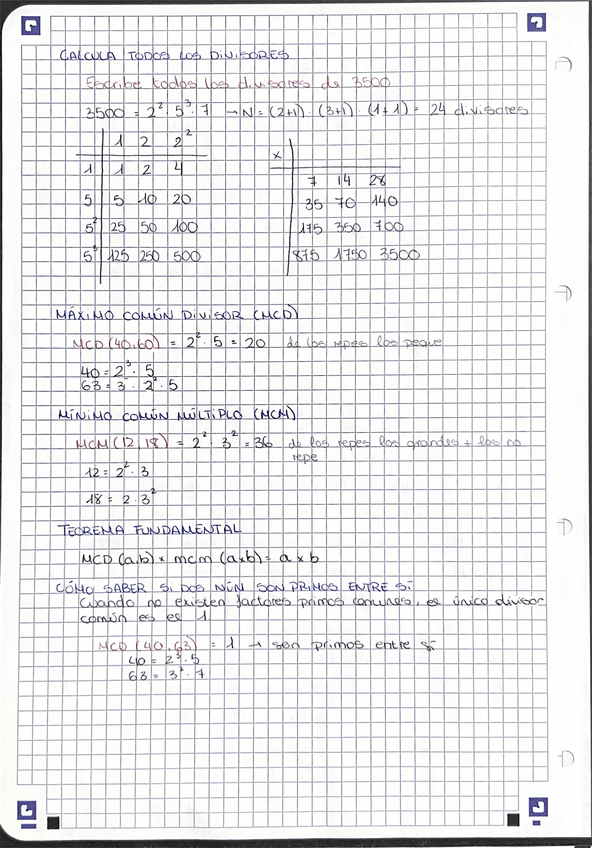 CALCULA TODOS LOS DIVISORES
Escribe todos los divisores de 3500
3500 = 2² · 5³ · 7 → N = (2+1) · (3+1) · (1+1) = 24 divisores
1 2 2²
1 1 2 4
5 5 10 20
5² 25 50 100
5³ 125 250 500
x
7 14 28
35 70 140
175 350 700
875 1750 3500
MÁXIMO COMÚN DIVISOR (MCD)
MCD (40,60) = 2² · 5 = 20 de los repes los peque
40 = 2³ · 5
63 = 3 · 2² · 5
MÍNIMO COMÚN MÚLTIPLO (MCM)
MCM (12, 18) = 2² · 3² = 36 de los repes los grandes + los no
repe
12 = 2² · 3
18 = 2 · 3²
TEOREMA FUNDAMENTAL
MCD (a,b) x mcm (axb) = a x b
CÓMO SABER SI DOS NÚM SON PRIMOS ENTRE SÍ
Cuando no existen factores primos comunes, el único divisor
común es el 1.
MCD (40,63) = 1 → son primos entre sí
40 = 2³ · 5
63 = 3² · 7